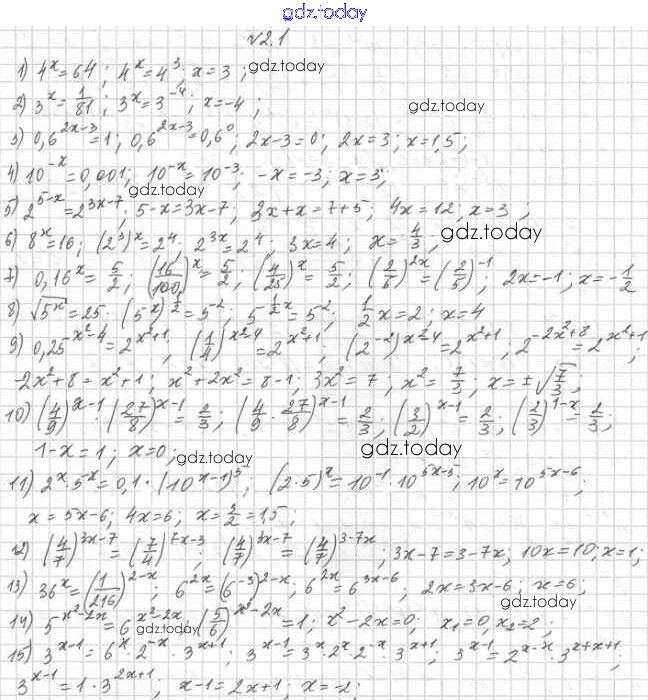 gdz.today
№2.1
1) 4^x=64; 4^x=4^3; x=3; gdz.today
2) 3^x=1/81; 3^x=3^-4; x=-4; gdz.today
3) 0,6^(2x-3)=1; 0,6^(2x-3)=0,6^0; 2x-3=0; 2x=3; x=1,5;
4) 10^-x=0,001; 10^-x=10^-3; -x=-3; x=3;
gdz.today
5) 2^(5-x)=2^(3x-7); 5-x=3x-7; 3x+x=7+5; 4x=12; x=3;
6) 8^x=16; (2^3)^x=2^4; 2^(3x)=2^4; 3x=4; x=4/3; gdz.today
7) 0,16^x=5/2; (16/100)^x=5/2; (4/25)^x=5/2; (2/5)^(2x)=(2/5)^-1; 2x=-1; x=-1/2
8) √(5^x)=25; (5^x)^(1/2)=5^2; 5^(1/2 x)=5^2; 1/2 x=2; x=4
9) 0,25^(x^2-4)=2^(x^2+1); (1/4)^(x^2-4)=2^(x^2+1); (2^-2)^(x^2-4)=2^(x^2+1); 2^(-2x^2+8)=2^(x^2+1);
-2x^2+8=x^2+1; x^2+2x^2=8-1; 3x^2=7; x^2=7/3; x=±√(7/3);
10) (4/9)^(x-1)·(27/8)^(x-1)=2/3; (4/9·27/8)^(x-1)=2/3; (3/2)^(x-1)=2/3; (2/3)^(1-x)=2/3;
1-x=1; x=0; gdz.today gdz.today
11) 2^x·5^x=0,1·(10^(x-1))^5; (2·5)^x=10^-1·10^(5x-5); 10^x=10^(5x-6);
x=5x-6; 4x=6; x=3/2=1,5; gdz.today
12) (4/7)^(3x-7)=(7/4)^(7x-3); (4/7)^(3x-7)=(4/7)^(3-7x); 3x-7=3-7x; 10x=10; x=1;
13) 36^x=(1/216)^(2-x); 6^(2x)=(6^-3)^(2-x); 6^(2x)=6^(3x-6); 2x=3x-6; x=6;
14) 5^(x^2-2x)=6^(x^2-2x); (5/6)^(x^2-2x)=1; x^2-2x=0; x₁=0, x₂=2; gdz.today
gdz.today
15) 3^(x-1)=6^x·2^-x·3^(x+1); 3^(x-1)=3^x·2^x·2^-x·3^(x+1); 3^(x-1)=2^(x-x)·3^(x+x+1);
3^(x-1)=1·3^(2x+1); x-1=2x+1; x=-2; gdz.today